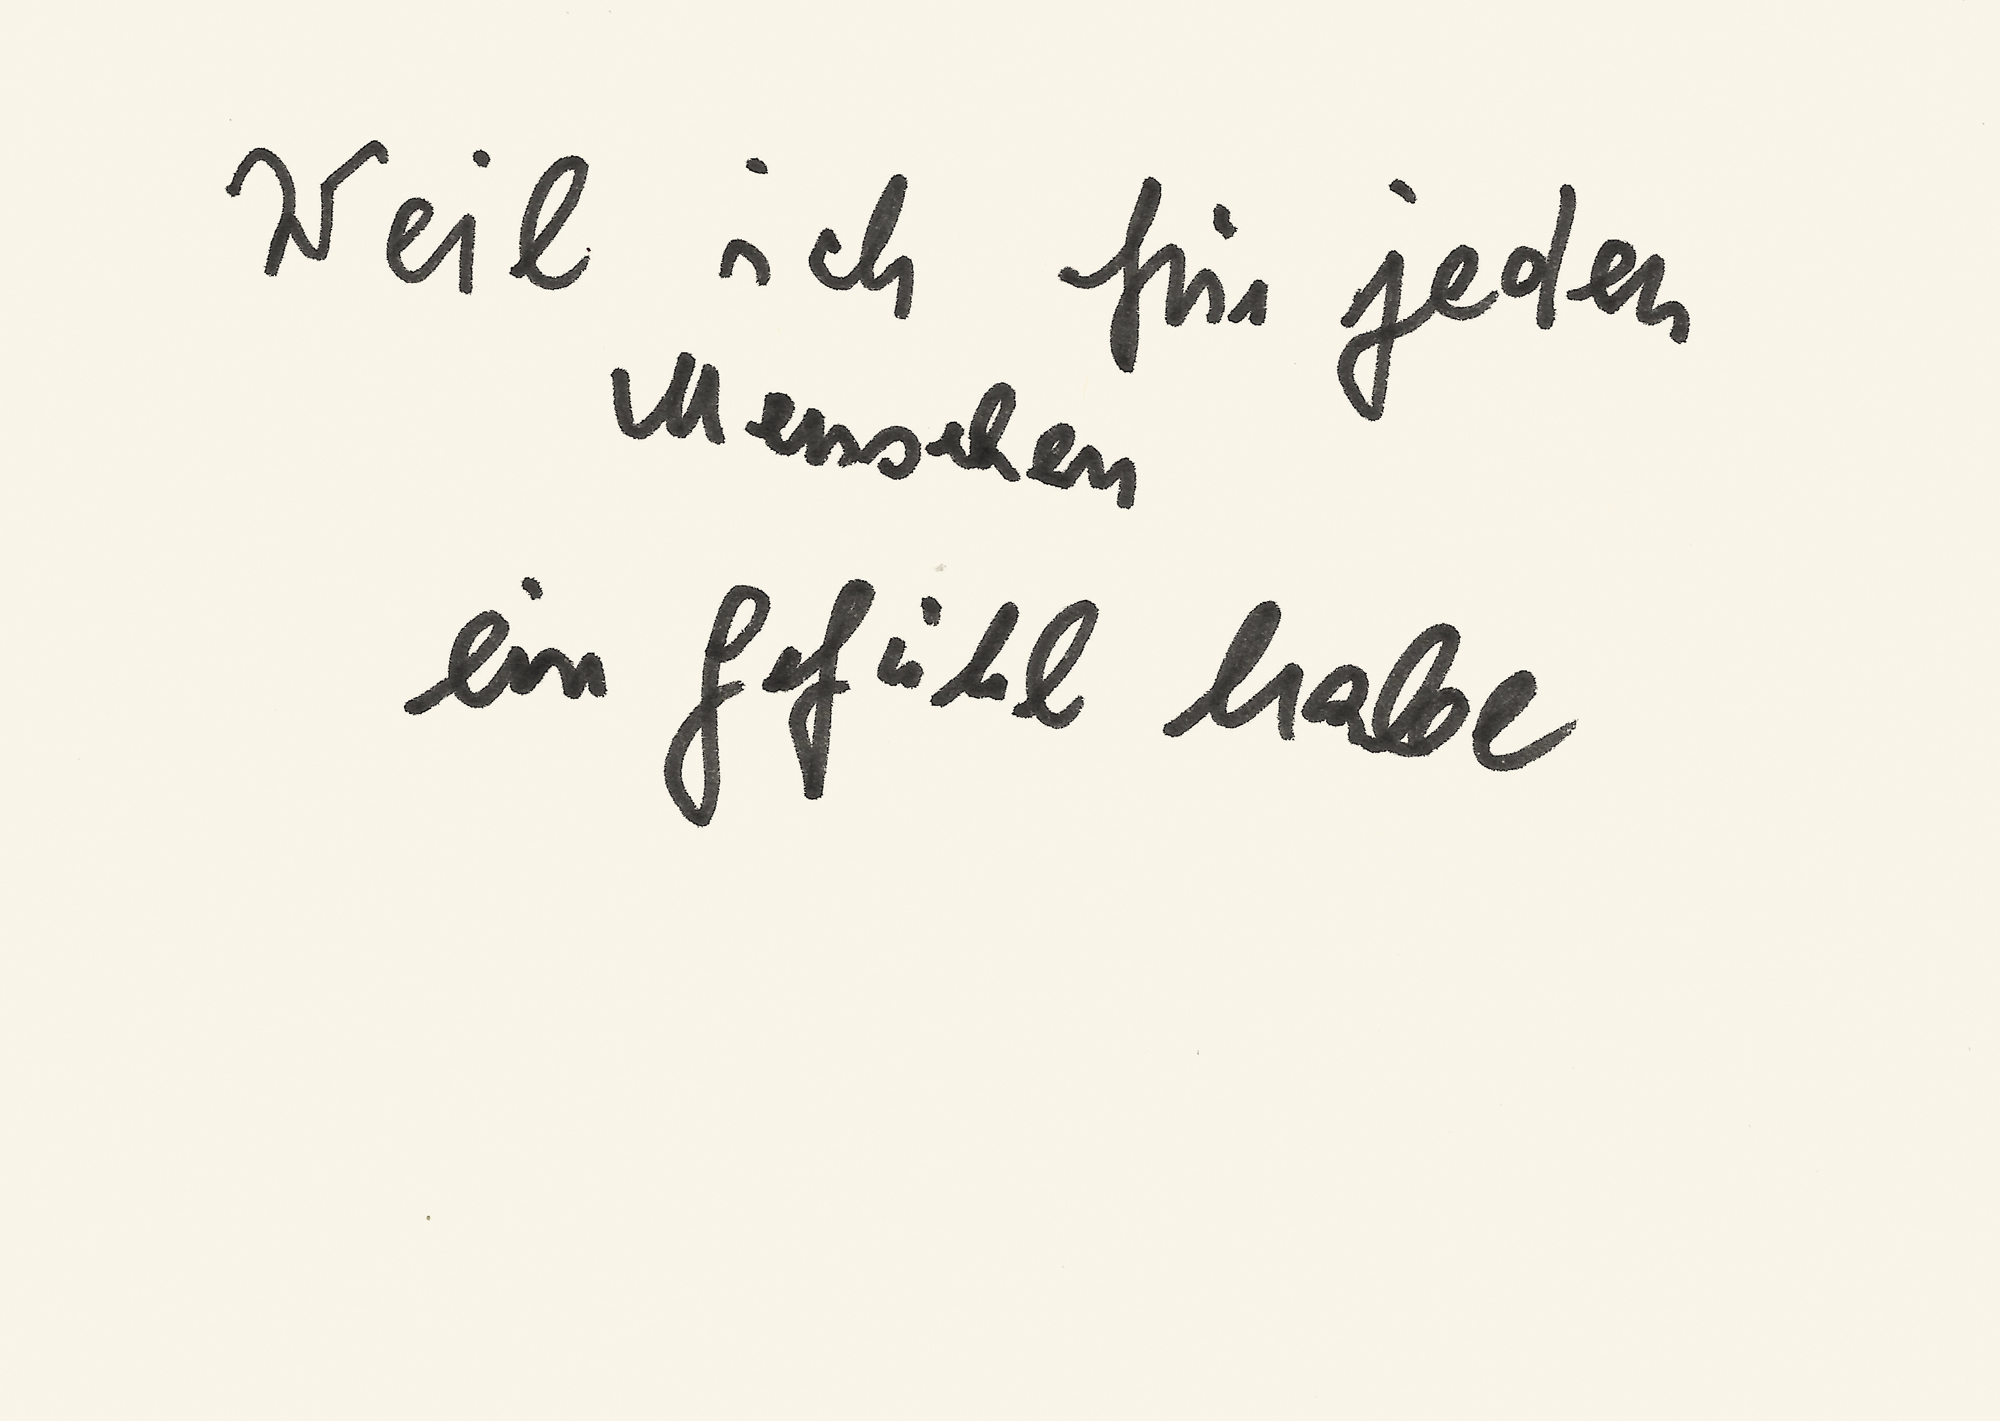 Weil ich für jeden
Menschen
ein Gefühl habe